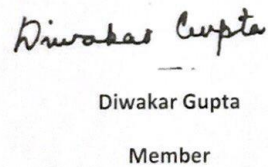 Diwakar Gupta
Diwakar Gupta
Member